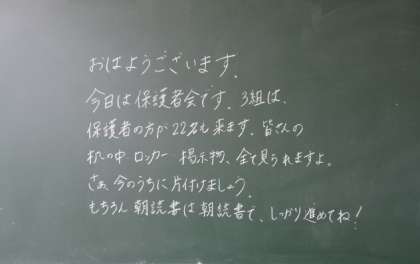 おはようございます.
今日は保護者会です. 3組は、
保護者の方が22名も来ます. 皆さんの
机の中 ロッカー 掲示物、全て見られますよ.
さぁ 今のうちに片付けましょう.
もちろん 朝読書は朝読書で、しっかり進めてね!